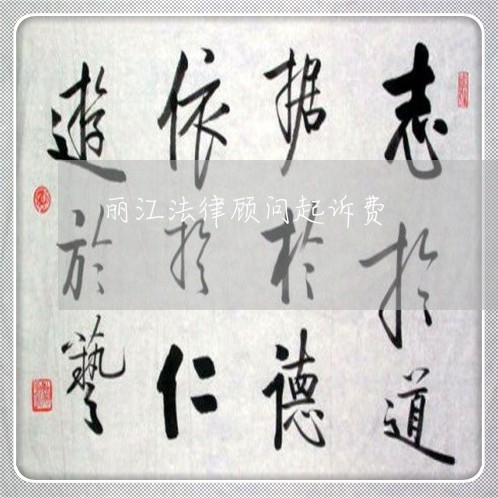 志於道
据於德
依於仁
遊於藝
丽江法律顾问起诉费